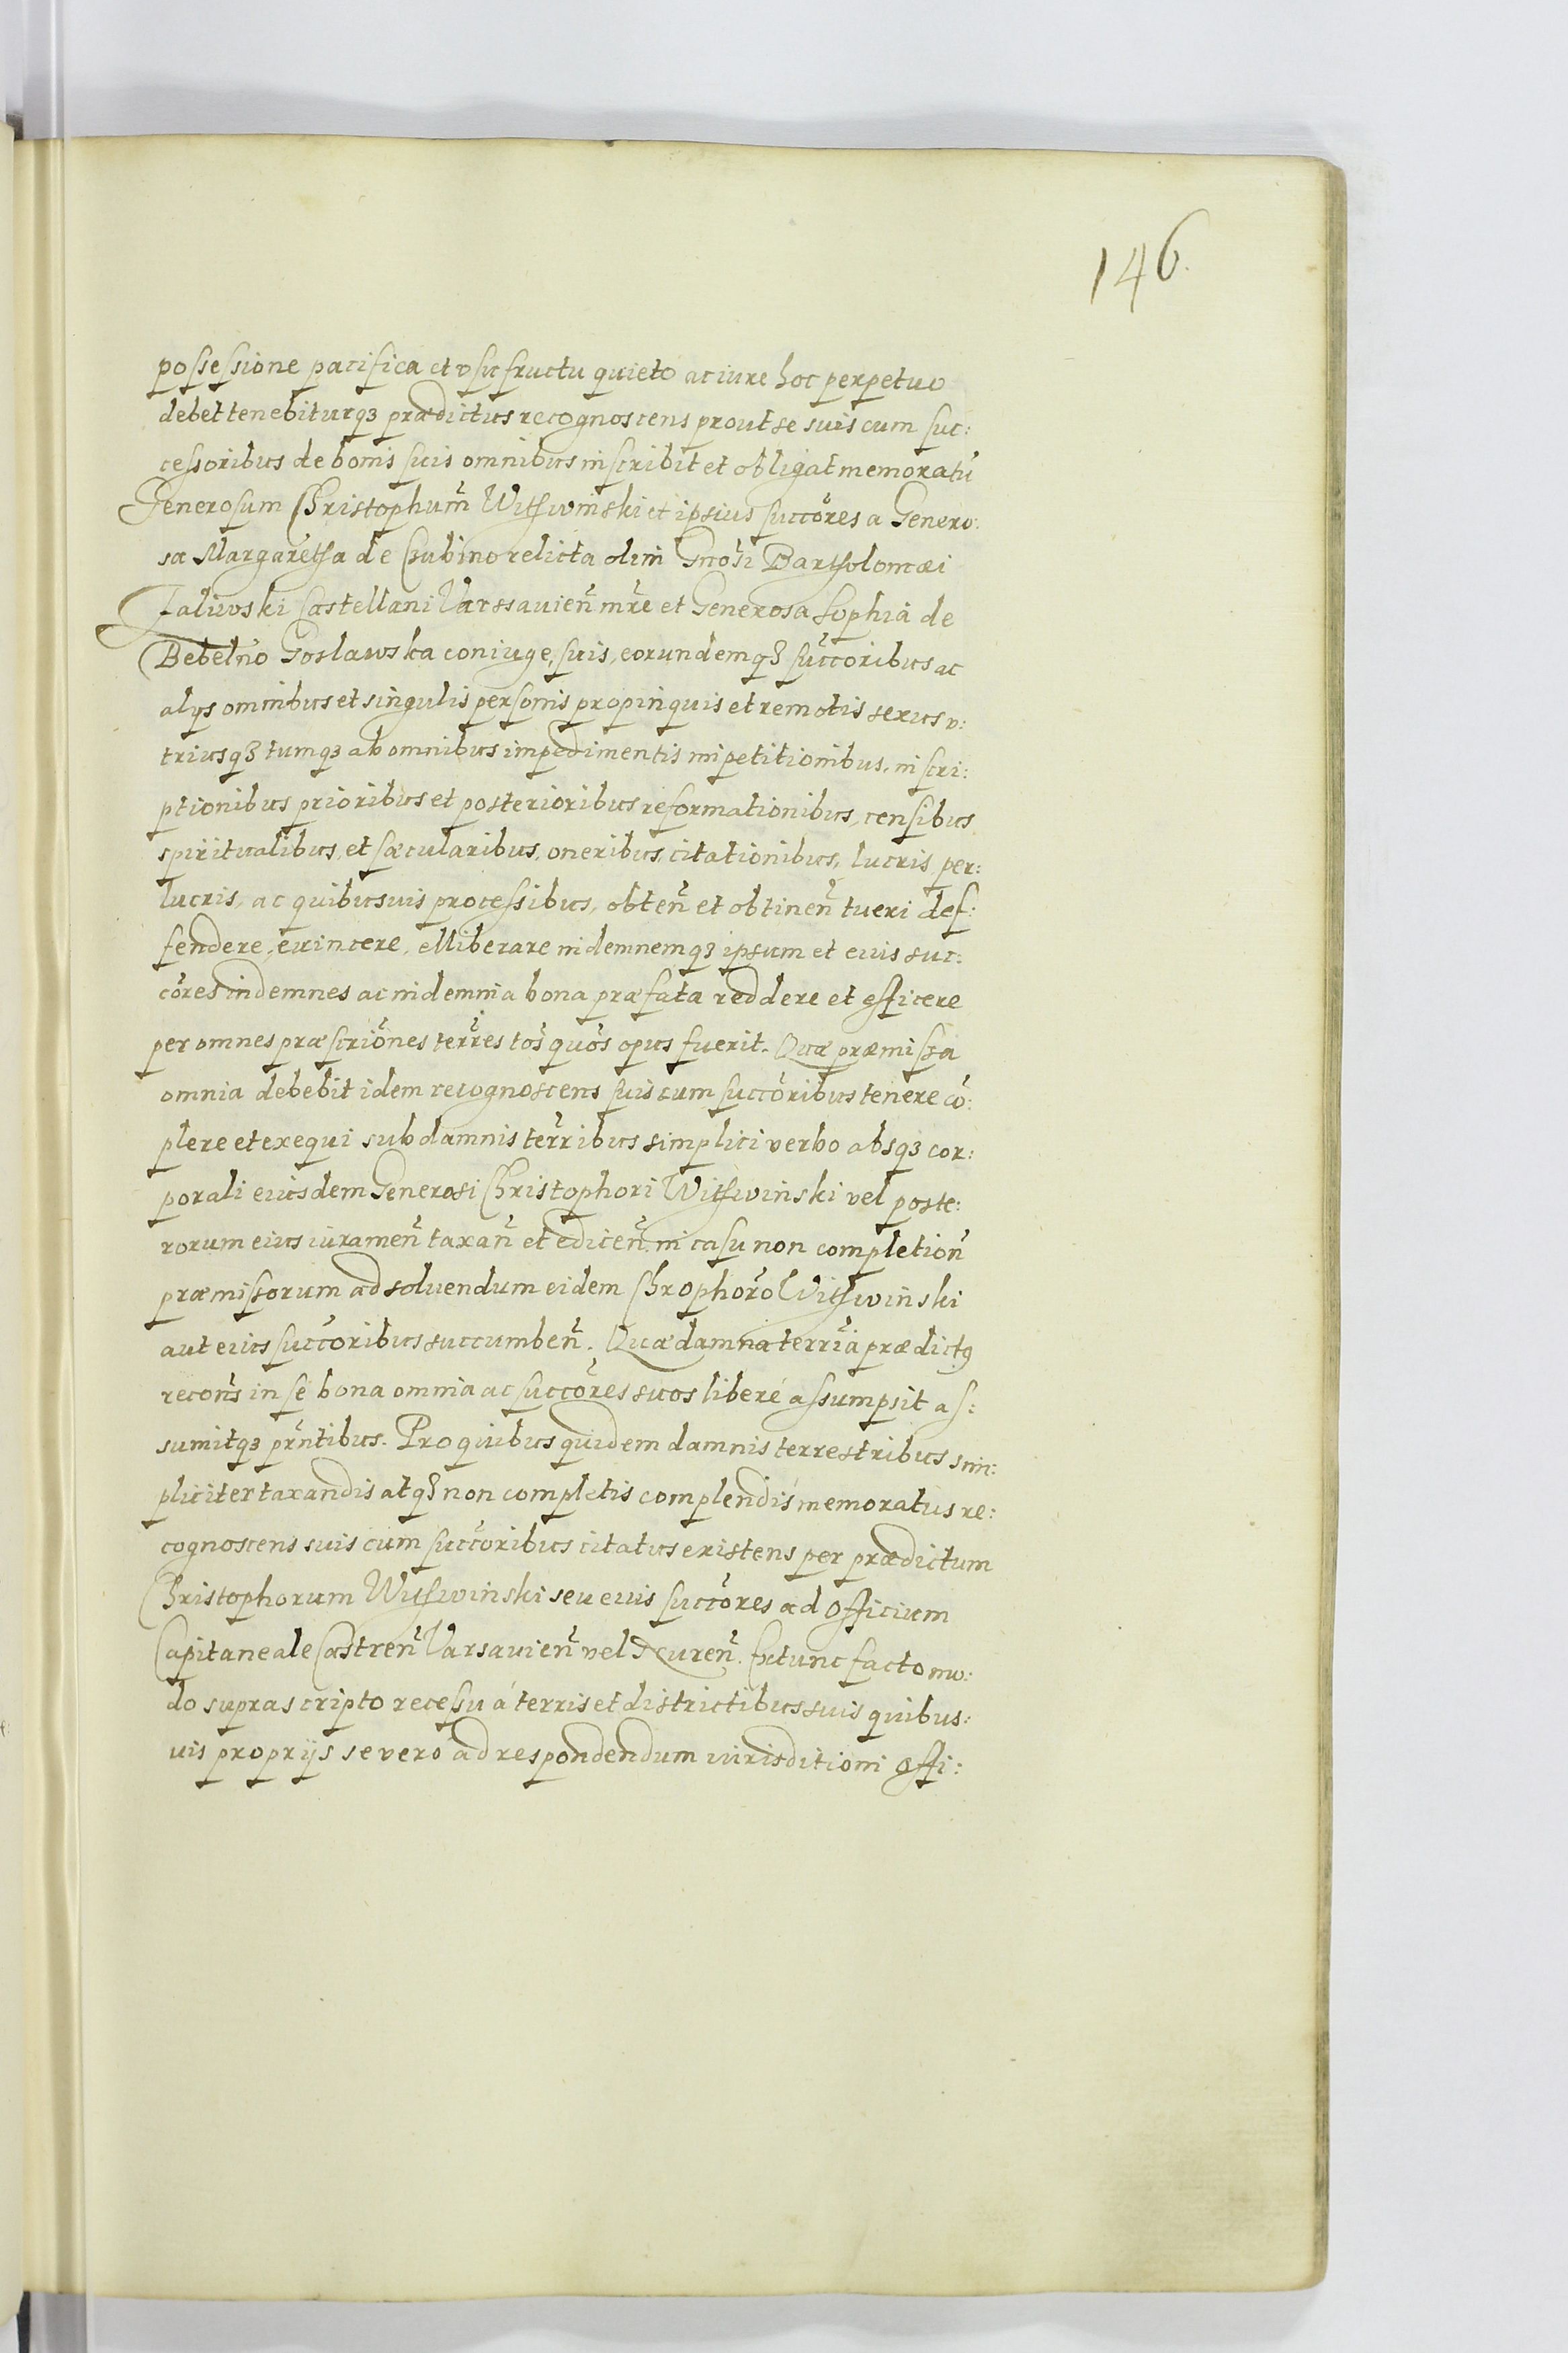 146.
possessione pacifica et vsufructu quieto ac iure hoc perpetuo
debet tenebiturq3 prædictus recognoscens prout se suis cum suc:
cessoribus de bonis suis omnibus inscribit et obligat memoratũ
Generosum Christophum̃ Withwinski et ipsius succõres a Genero:
sa Margaretha de Chubino relicta olim Gñosi Bartholomæi
Zaliwski Castellani Varssauien̄ mr̃e et Generosa Sophia de
Bebelno Goslawska coniuge, suis, eorundemq3 succ̃oribus ac
alijs omnibus et singulis personis propinquis et remotis sexus v:
triusq3 tumq3 ab omnibus impedimentis impetitionibus, inscri:
ptionibus prioribus et posterioribus reformationibus, censibus
spiritualibus, et sæcularibus, oneribus, citationibus, lucris, per:
lucris, ac quibusuis processibus, obten̄ et obtinen̄ tueri def:
fendere, euincere, et liberare indemnemq3 ipsum et eius suc:
cõres indemnes ac indemnia bona præfata reddere et efficere
per omnes præscriõnes terr̃es tõs quõs opus fuerit. Quæ præmissa
omnia debebit idem recognoscens suis cum succ̃oribus tenere cõ:
plere et exequi sub damnis terr̃ibus simplici verbo absq3 cor:
porali eiusdem Generosi Christophori Withwinski vel poste:
rorum eius iuramen̄ taxan̄ et edicen̄. in casu non completion̄
præmissorum ad soluendum eidem Chrophor̃o Withwinski
aut eius succ̃oribus succumben̄. Quæ damna terr̃ia prædictꝰ
recon̄s in se bona omnia ac succõres suos liberé assumpsit as:
sumitq3 pr̃ntibus. Pro quibus quidem damnis terrestribus sim:
pliciter taxandis atq3 non completis complendis memoratus re:
cognoscens suis cum succ̃oribus citatus existens per prædictum
Christophorum Withwinski seu eius succõres ad Officium
Capitaneale Castren̄ Varsauien̄ vel Curen̄. Extunc facto mo:
do suprascripto recessu á terris et districtibus suis quibus:
uis proprijs se vero ad respondendum iurisditioni offi: